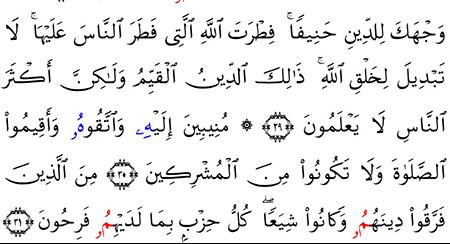 وَجۡهَكَ لِلدِّينِ حَنِيفٗاۚ فِطۡرَتَ ٱللَّهِ ٱلَّتِي فَطَرَ ٱلنَّاسَ عَلَيۡهَاۚ لَا
تَبۡدِيلَ لِخَلۡقِ ٱللَّهِۚ ذَٰلِكَ ٱلدِّينُ ٱلۡقَيِّمُ وَلَٰكِنَّ أَكۡثَرَ
ٱلنَّاسِ لَا يَعۡلَمُونَ ٢٩ ۞ مُنِيبِينَ إِلَيۡهِۦ وَٱتَّقُوهُۥ وَأَقِيمُواْ
ٱلصَّلَوٰةَ وَلَا تَكُونُواْ مِنَ ٱلۡمُشۡرِكِينَ ٣٠ مِنَ ٱلَّذِينَ
فَرَّقُواْ دِينَهُمُۥ وَكَانُواْ شِيَعٗاۖ كُلُّ حِزۡبِۭ بِمَا لَدَيۡهِمُۥ فَرِحُونَ ٣١